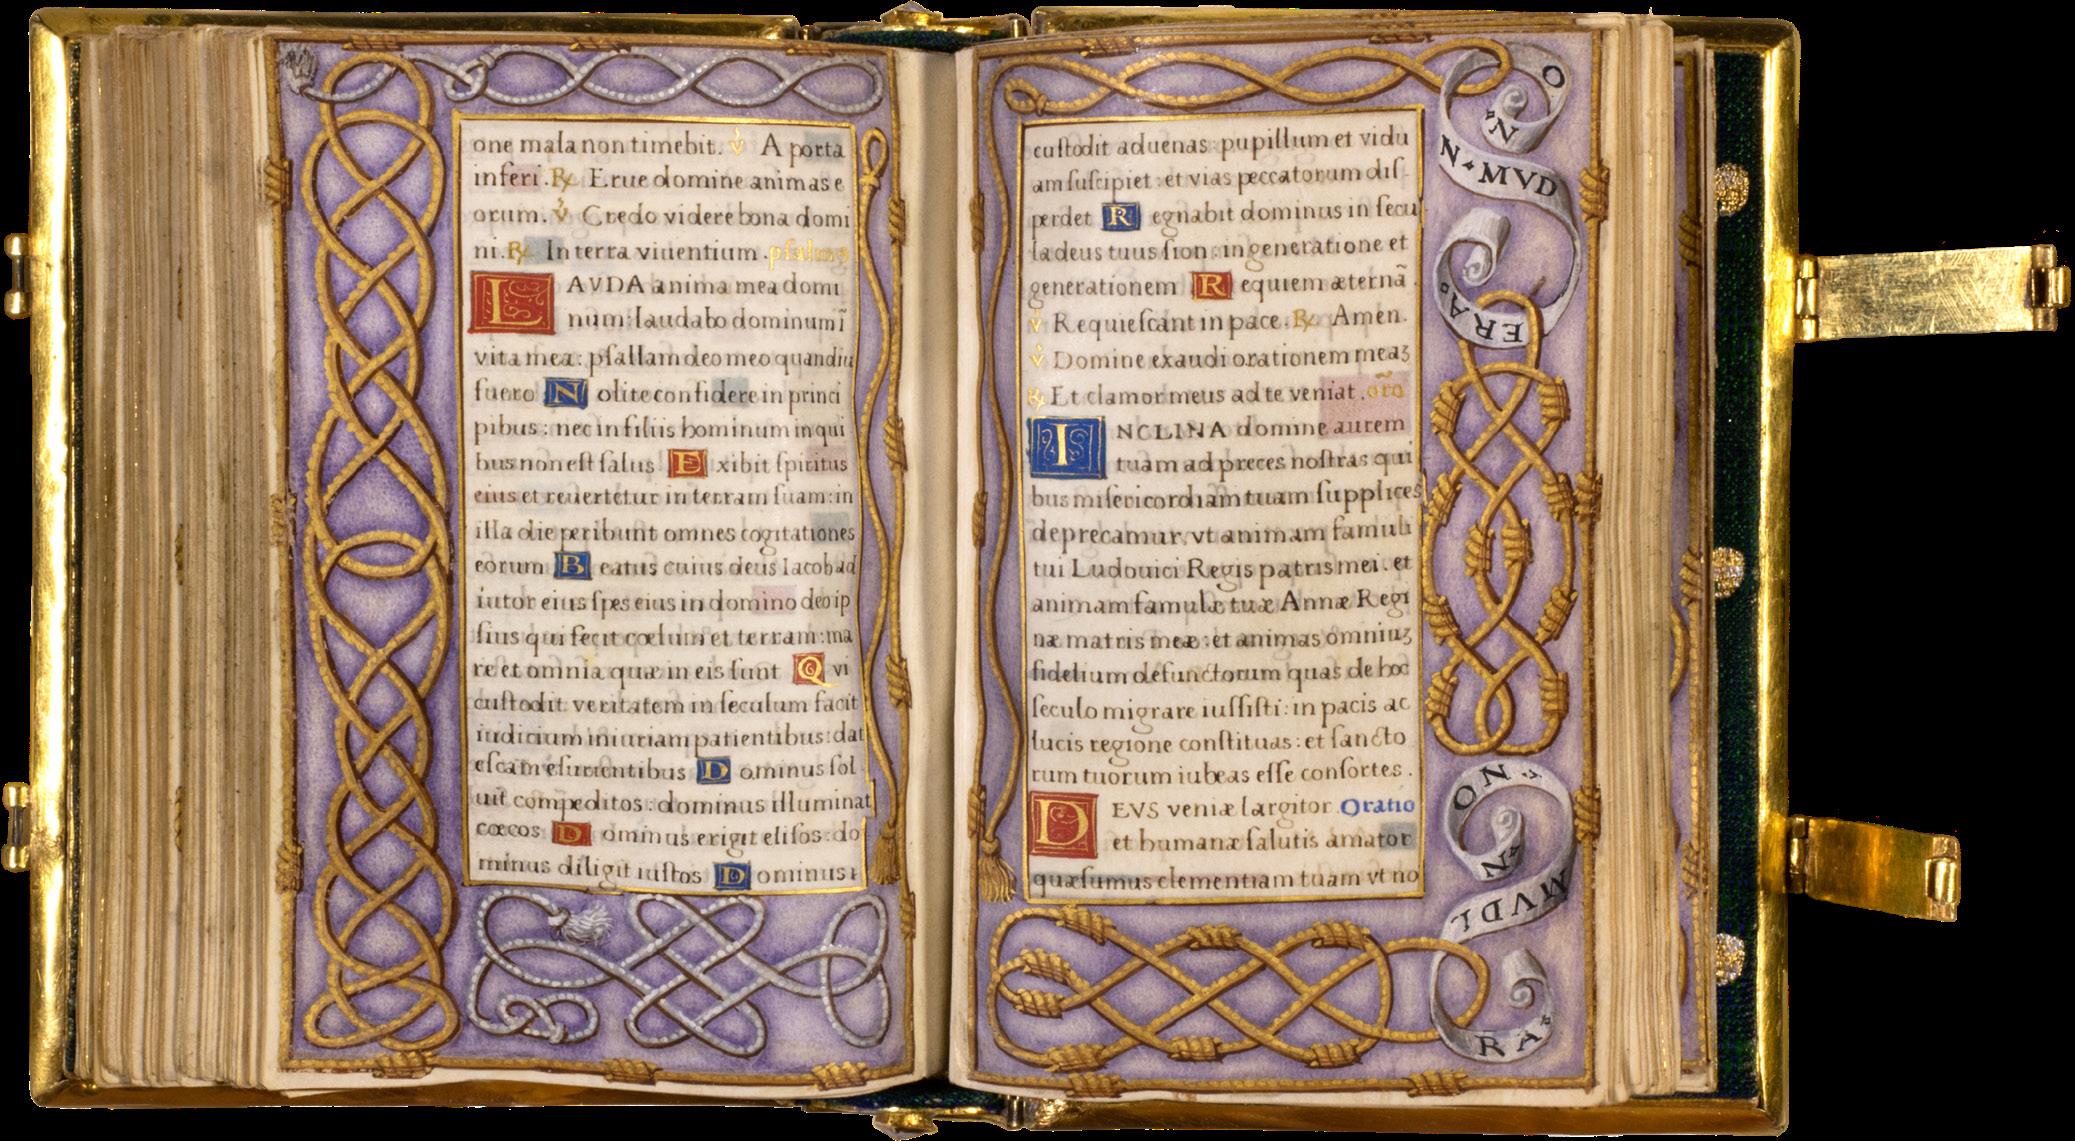 one mala non timebit. ℣ A porta
inferi. ℟ Erue domine animas e
orum. ℣ Credo videre bona domi
ni. ℟ In terra viuentium. psalmus
LAVDA anima mea domi
num: laudabo dominum ī
vita mea: pſallam deo meo quandiu
fuero Nolite confidere in princi
pibus: nec in filiis hominum in qui
bus non eſt ſalus Exibit ſpiritus
eius et reuertetur in terram ſuam: in
illa die peribunt omnes cogitationes
eorum Beatus cuius deus Iacob ad
iutor eius ſpes eius in domino deo ip
ſius qui fecit cœlum et terram: ma
re et omnia quæ in eis ſunt Qvi
cuſtodit veritatem in ſeculum facit
iudicium iniuriam patientibus: dat
eſcam eſurientibus Dominus ſol
uit compeditos: dominus illuminat
cœcos Dominus erigit eliſos: do
minus diligit iuſtos Dominus
cuſtodit aduenas: pupillum et vidu
am ſuſcipiet: et vias peccatorum diſ
perdet Regnabit dominus in ſecu
la deus tuus ſion: in generatione et
generationem Requiem æternã.
℣ Requieſcant in pace. ℟ Amen.
℣ Domine exaudi orationem meaʒ
℟ Et clamor meus ad te veniat. oro
INCLINA domine aurem
tuam ad preces noſtras qui
bus miſericordiam tuam ſupplices
deprecamur, vt animam famuli
tui Ludouici Regis patris mei. et
animam famulæ tuæ Annæ Regi
næ matris meæ: et animas omniuʒ
fidelium defunctorum quas de hoc
ſeculo migrare iuſſiſti: in pacis ac
lucis regione conſtituas: et ſancto
rum tuorum iubeas eſſe conſortes.
DEVS veniæ largitor Oratio
et humanæ ſalutis amator
quæſumus clementiam tuam vt no
NO
N·MVD
ERA
NON
MVDE
RA